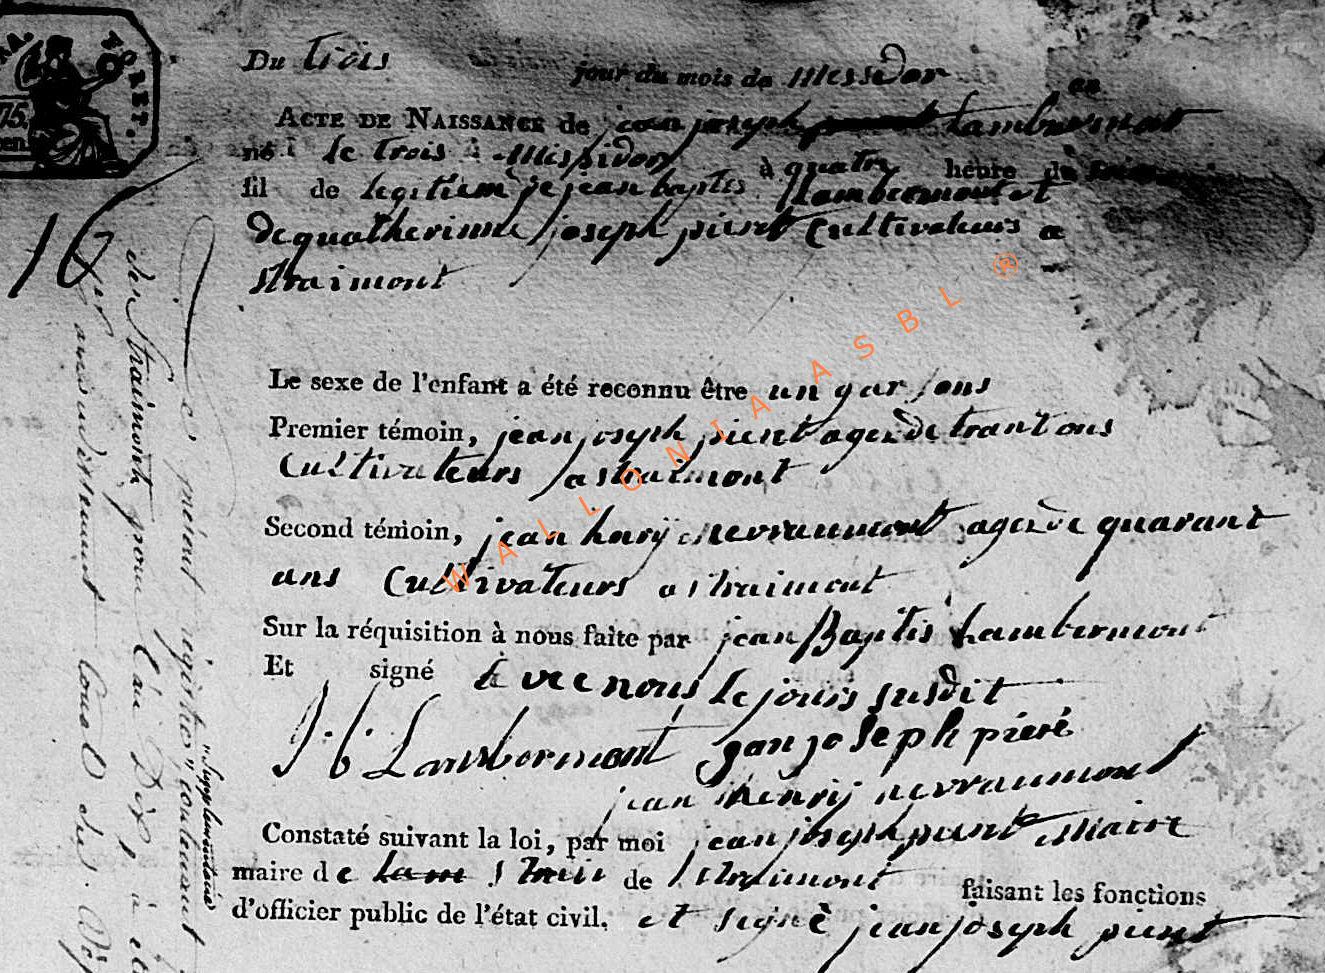 Du trois jour du mois de Messidor
en
ACTE DE NAISSANCE de jean joseph Lambermont
né le trois Missidor à quatre heure de
fil de legitiem de jean baptis Lambermont et
de quatherinne joseph pierret Cultivateurs a
straimont
Le sexe de l'enfant a été reconnu être un garsons
Premier témoin, jean joseph pieret agez de trant ans
Cultivateurs a straimont
Second témoin, jean hary nevraumont agez de quarant
ans Cultivateurs a straimont
Sur la réquisition à nous faite par jean Baptis Lambermont
Et signé avec nous le jours susdit
J: b: Lambermont janjoseph piéré
jean henrij nevraumont
Constaté suivant la loi, par moi jean joseph pieret Maire
maire de de straimont faisant les fonctions
d'officier public de l'état civil. et signè jean joseph pieret
16
présent régistre "supplementaire" contenant
de Straimont, pour l'an Dix, à été
75.
WALLONIA ASBL ®